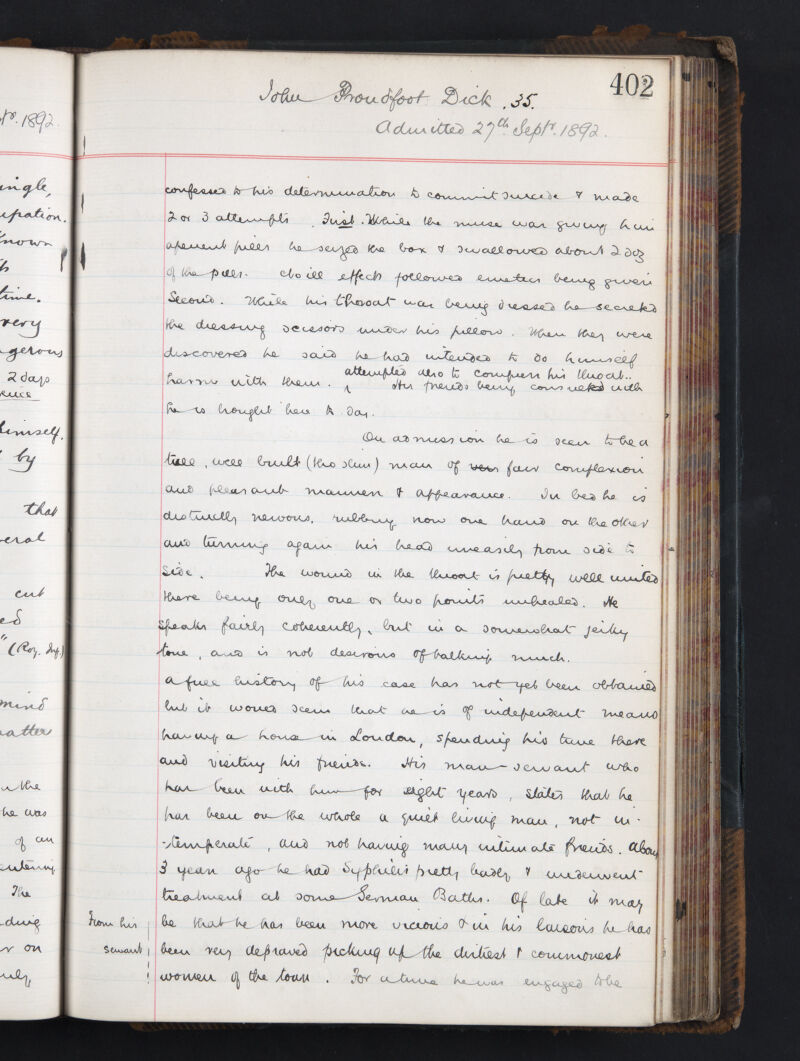 402
John Proudfoot Dick . 35.
Admitted 27th Septr. 1892.
confessed to his determination to commit suicide & made
2 or 3 attempts . First . While the nurse was giving him
aperient pills he seized the box & swallowed about 2 doz
of the pills. No ill effects followed emetics being given
Second. While his throat was being dressed he secreted
the dressing scissors under his pillow. When they were
discovered he said he had intended to do himself
harm with them. attempted also to compress his throat.. His friends being consulted with
he is brought here to day.
On admission he is seen to be a
tall, well built (tho slim) man of fair complexion
and pleasant manners & appearance. In bed he is
distinctly nervous, rubbing now one hand on the other
and turning again his head uneasily from side to
side. The wound in the throat is pretty well united
there being only one or two points unhealed. He
speaks fairly coherently, but in a somewhat jerky
tone, and is not desirous of talking much.
A full history of his case has not yet been obtained
but it would seem that he is of independent means
having a house in London, spending his time there
and visiting his friends. His man-servant who
has been with him for eight years, states that he
has been on the whole a quiet living man, not in-
-temperate, and not having many intimate friends. About
3 years ago he had Syphilis pretty badly & underwent
treatment at some German Baths. Of late it may
be that he has been more vicious & in his liaisons he has
been very depraved picking up the dirtiest & commonest
women of the town. For a time he was engaged to be
From his
servant
ptr. 1892
ingle,
upation.
known
time.
very
gerous
2 days
himself.
by
that
eral
cut
ed
" (Roy. Inf.)
mind
matter
in the
he was
of an
entering
The
ding
r on